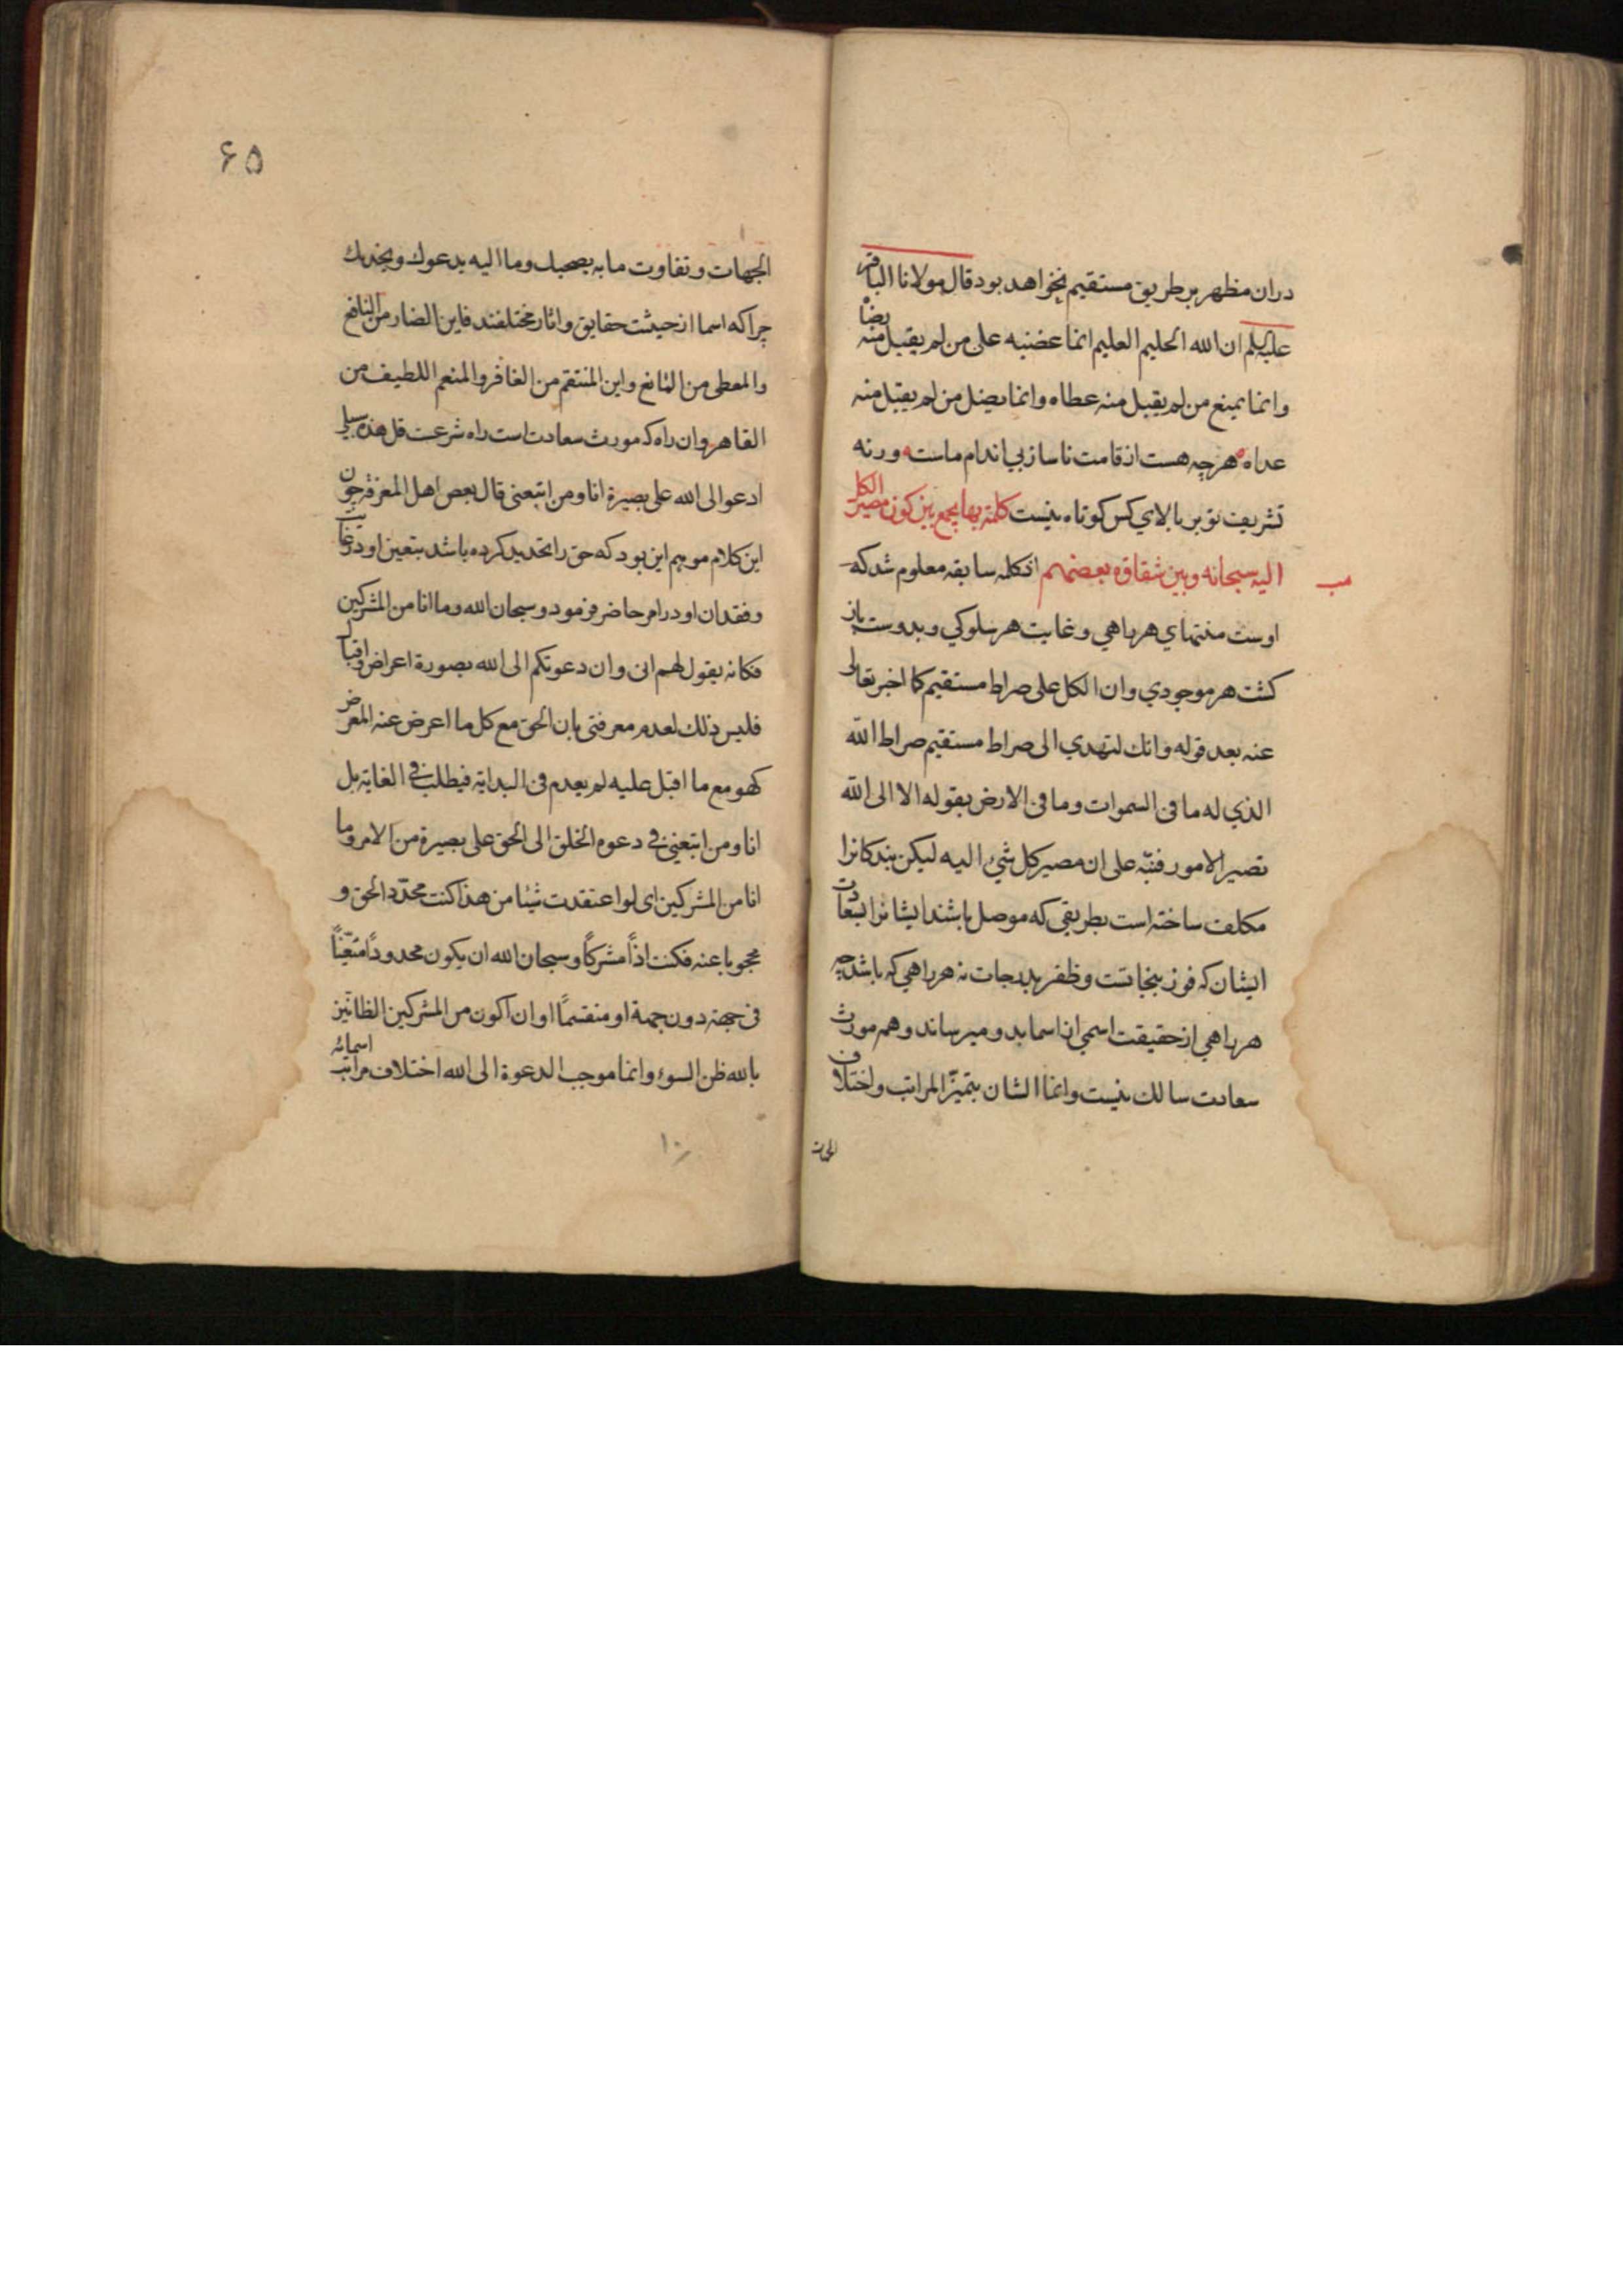 دران مظهر بر طریق مستقیم نخواهد بود قال مولانا الباقر
علیه السلم ان الله الحلیم العلیم انما غضبه علی من لم یقبل منه رضاه
وانما یمنع من لم یقبل منه عطاه وانما یضل من لم یقبل منه
هداه هرچه هست از قامت ناساز بی اندام ماست ورنه
تشریف تو بر بالای کس کوتاه نیست کلمة بها یجمع بین کون مصیر الکل
الیه سبحانه وبین شقاوة بعضهم از کلمه سابقه معلوم شد که
اوست منتهای هر راهی و غایت هر سلوکی و بدوست باز
کشت هر موجودی وان الکل علی صراط مستقیم کما اخبر تعالی
عنه بعد قوله وانك لتهدی الی صراط مستقیم صراط الله
الذی له ما فی السموات وما فی الارض بقوله الا الی الله
تصیر الامور فنبّه علی ان مصیر کل شیء الیه لیکن بندکانرا
مکلف ساخته است بطریقی که موصل باشد ایشانرا بسعادت
ایشان که فوز بنجاتست و ظفر بدرجات نه هر راهی که باشد چه
هر راهی از حقیقت اسمی از اسما بدو میرساند و هم مورث
سعادت سالك نیست وانما الشان بتمیز المراتب واختلاف
الجهات
۶۵
الجهات و تفاوت ما به یصحبك وما الیه یدعوك ویجذبك
چرا که اسما از حیثیت حقایق و اثار مختلفند فاین الضار من النافع
والمعطی من المانع واین المنتقم من الغافر والمنعم اللطیف من
القاهر وان راه که مورث سعادت است راه شرعست قل هذه سبیلی
ادعو الی الله علی بصیرة انا ومن اتبعنی قال بعض اهل المعرفة چون
این کلام موهم این بود که حق را تحدید کرده باشد بتعین او در غایت
و فقدان او در امر حاضر فرمود و سبحان الله وما انا من المشرکین
فکانه یقول لهم انی وان دعوتکم الی الله بصورة اعراض و اقبال
فلیس ذلك لعدم معرفتی بان الحق مع کل ما اعرض عنه المعرض
کهو مع ما اقبل علیه لم یعدم فی البدایة فیطلب فی الغایة بل
انا ومن اتبعنی فی دعوة الخلق الی الحق علی بصیرة من الامر وما
انا من المشرکین ای لو اعتقدت شیئا من هذا کنت محدّد الحق و
محجوبا عنه فکنت اذًا مشرکًا وسبحان الله ان یکون محدودًا متعیّنًا
فی جهة دون جهة او منقسمًا او ان اکون من المشرکین الظانین
بالله ظن السوء وانما موجب الدعوة الی الله اختلاف مراتب اسمائه